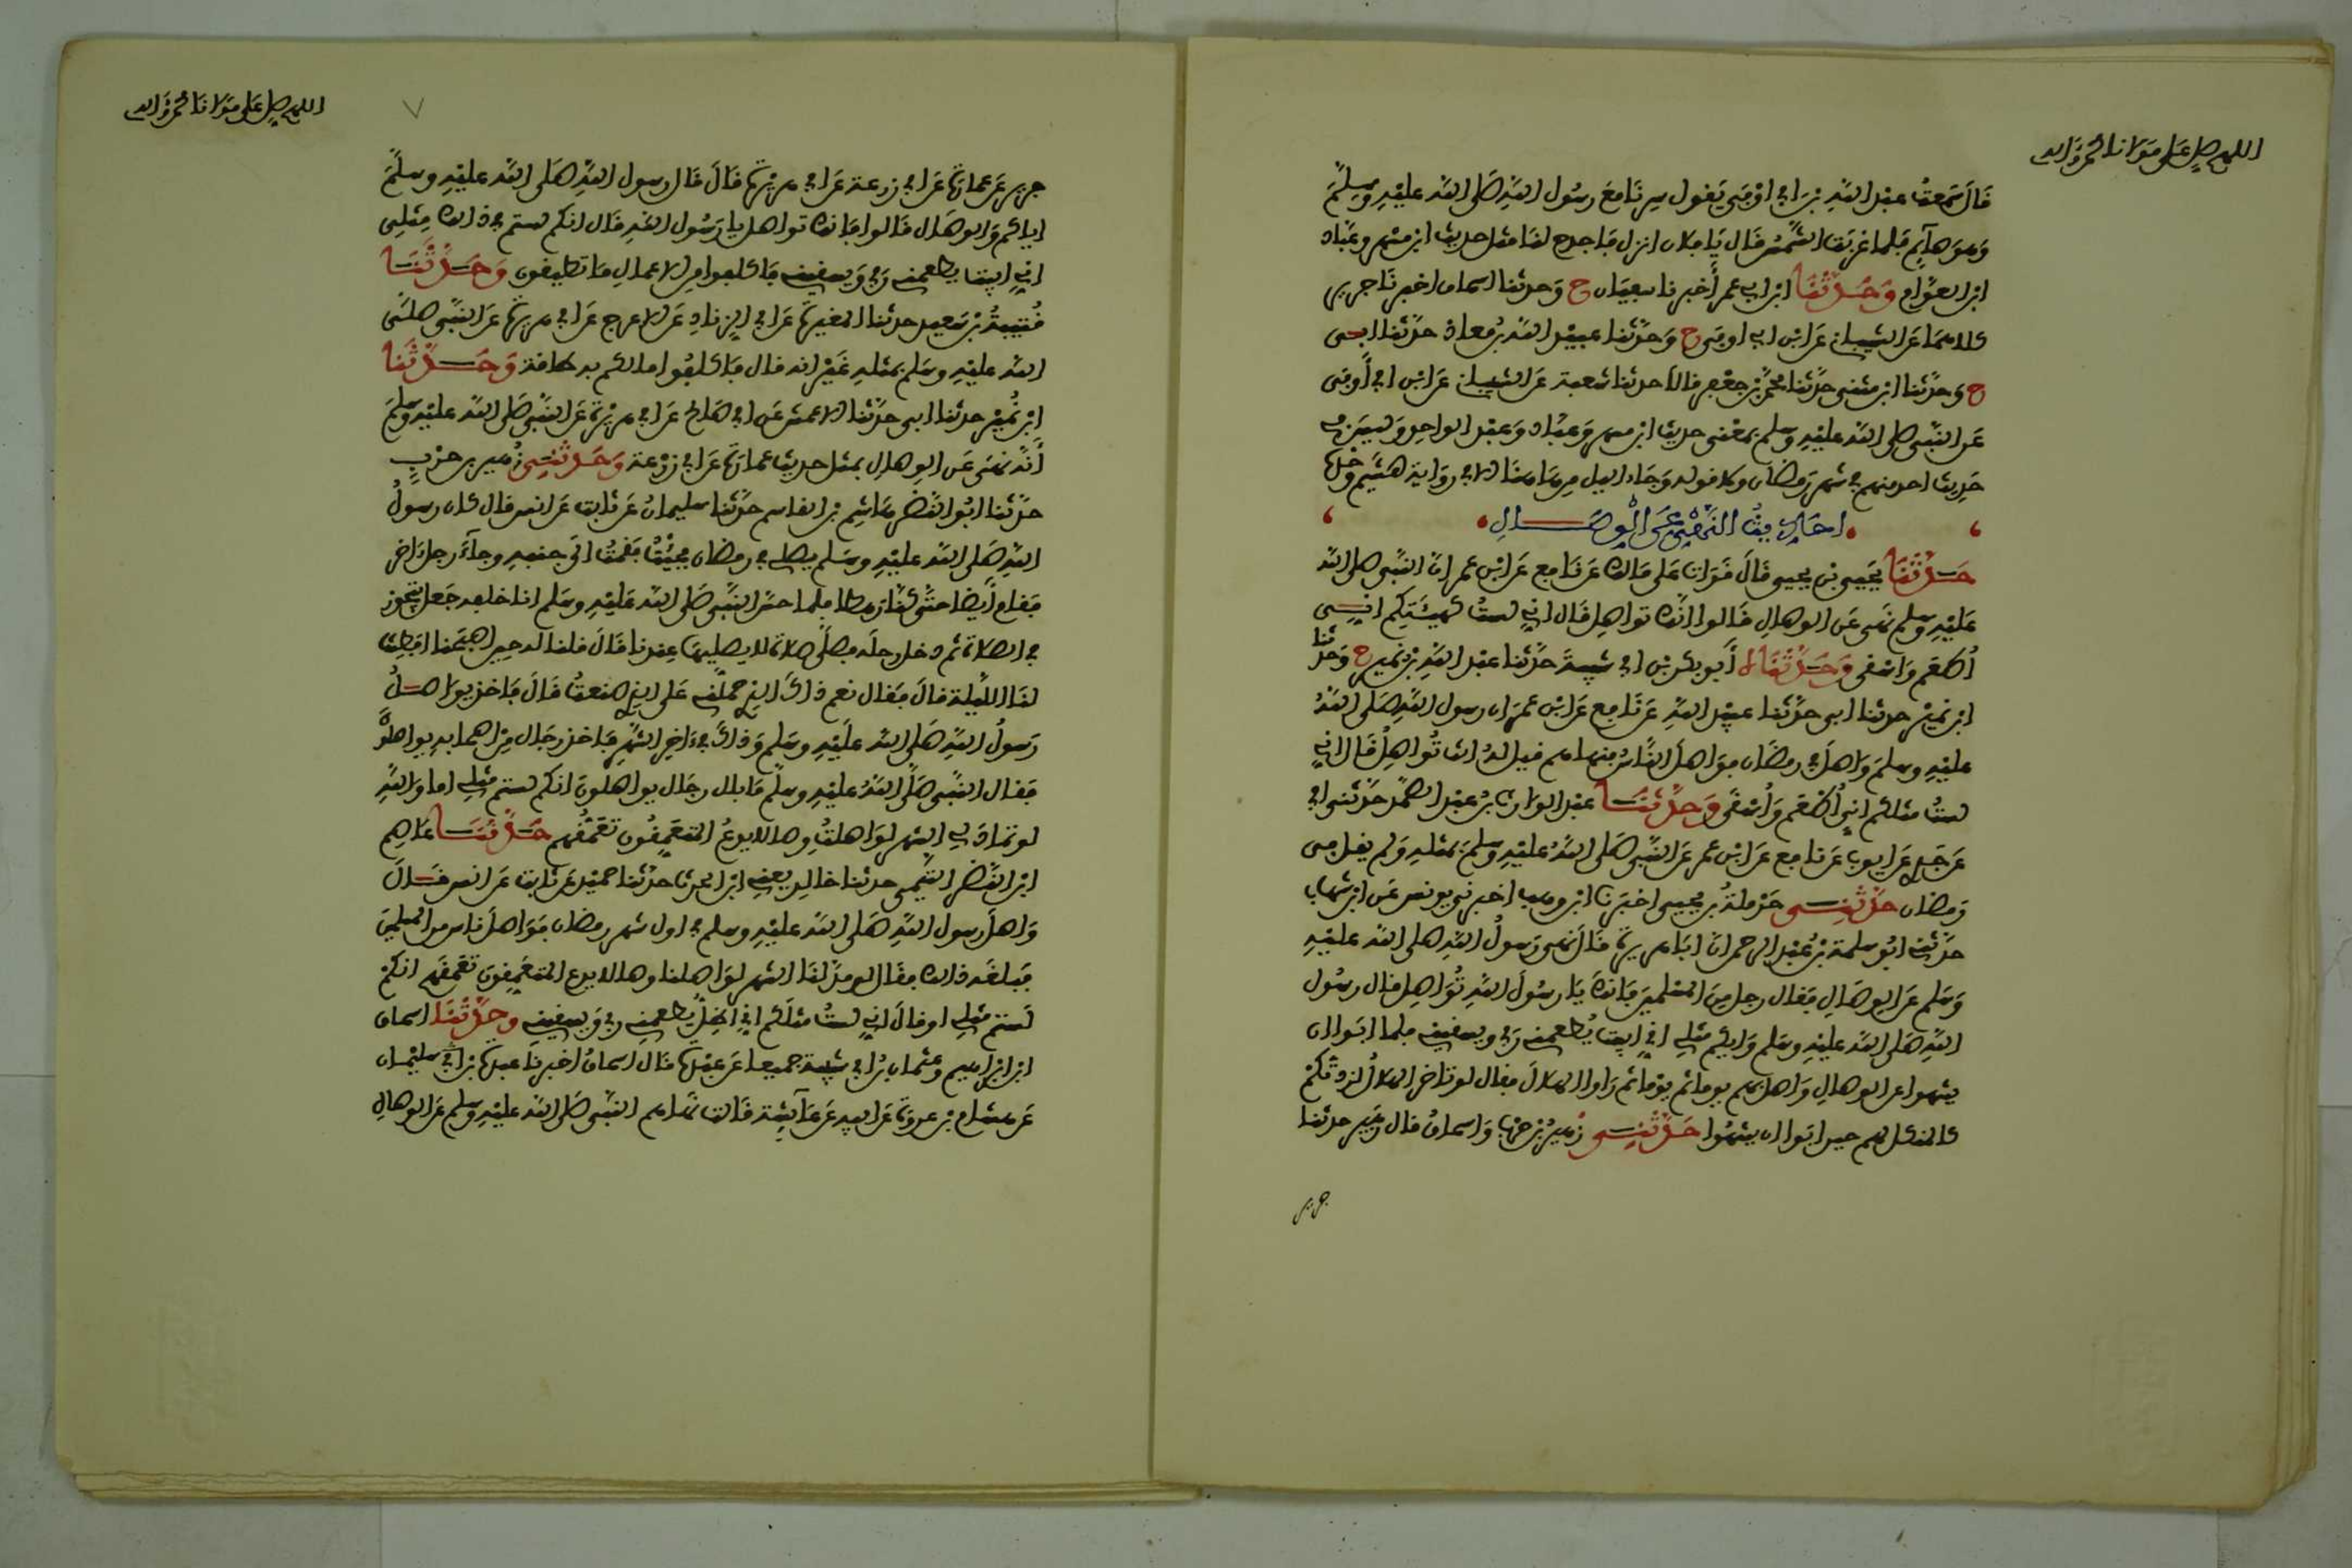 اللهم صل على مولانا محمد وآله
قال سمعت عبد الله بن ابي اوفى يقول سرنا مع رسول الله صلى الله عليه وسلم
وهو صائم فلما غربت الشمس قال يا فلان انزل فاجدح لنا مثل حديث ابن مسهر وعباد
ابن العوام وحدثنا ابن ابي عمر أخبرنا سفيان ح وحدثنا اسحاق اخبرنا جرير
كلاهما عن الشيباني عن ابن ابي اوفى ح وحدثنا عبيد الله بن معاذ حدثنا ابي
ح وحدثنا ابن مثنى حدثنا محمد بن جعفر قالا حدثنا شعبة عن الشيباني عن ابن ابي أوفى
عن النبي صلى الله عليه وسلم بمعنى حديث ابن مسهر وعباد وعبد الواحد وليس في
حديث احد منهم في شهر رمضان ولا قوله وجاء الليل من هاهنا الا في رواية هشيم وحده
احاديث النهي عن الوصال
حدثنا يحيى بن يحيى قال قرات على مالك عن نافع عن ابن عمر ان النبي صلى الله
عليه وسلم نهى عن الوصال قالوا انك تواصل قال اني لست كهيئتكم اني
أطعم واسقى وحدثناه أبو بكر بن ابي شيبة حدثنا عبد الله بن نمير ح وحدثنا
ابن نمير حدثنا ابي حدثنا عبيد الله عن نافع عن ابن عمر ان رسول الله صلى الله
عليه وسلم واصل في رمضان فواصل الناس فنهاهم قيل له انت تواصل قال اني
لست مثلكم اني أطعم وأسقى وحدثنا عبد الوارث بن عبد الصمد حدثني ابي
عن جدي عن ايوب عن نافع عن ابن عمر عن النبي صلى الله عليه وسلم بمثله ولم يقل في
رمضان حدثني حرملة بن يحيى اخبرنا ابن وهب اخبرني يونس عن ابن شهاب
حدثني ابو سلمة بن عبد الرحمن ان ابا هريرة قال نهى رسول الله صلى الله عليه
وسلم عن الوصال فقال رجل من المسلمين فانك يا رسول الله تواصل قال رسول
الله صلى الله عليه وسلم وايكم مثلي اني ابيت يطعمني ربي ويسقيني فلما ابوا ان
ينتهوا عن الوصال واصل بهم يوما ثم يوما ثم راوا الهلال فقال لو تاخر الهلال لزدتكم
كالمنكل لهم حين ابوا ان ينتهوا حدثني زهير بن حرب واسحاق قال زهير حدثنا
جرير
اللهم صل على مولانا محمد وآله
جرير عن عمارة عن ابي زرعة عن ابي هريرة قال قال رسول الله صلى الله عليه وسلم
اياكم والوصال قالوا فانك تواصل يا رسول الله قال انكم لستم في ذلك مثلي
اني ابيت يطعمني ربي ويسقيني فاكلفوا من الاعمال ما تطيقون وحدثنا
قتيبة بن سعيد حدثنا المغيرة عن ابي الزناد عن الاعرج عن ابي هريرة عن النبي صلى
الله عليه وسلم بمثله غير انه قال فاكلفوا ما لكم به طاقة وحدثنا
ابن نمير حدثنا ابي حدثنا الاعمش عن ابي صالح عن ابي هريرة عن النبي صلى الله عليه وسلم
أنه نهى عن الوصال بمثل حديث عمارة عن ابي زرعة وحدثني زهير بن حرب
حدثنا ابو النضر هاشم بن القاسم حدثنا سليمان عن ثابت عن انس قال كان رسول
الله صلى الله عليه وسلم يصلي في رمضان فجئت فقمت الى جنبه وجآء رجل اخر
فقام أيضا حتى كنا رهطا فلما حس النبي صلى الله عليه وسلم انا خلفه جعل يتجوز
في الصلاة ثم دخل رحله فصلى صلاة لا يصليها عندنا قال قلنا له حين اصبحنا افطنت
لنا الليلة قال فقال نعم ذاك الذي حملني على الذي صنعت قال فاخذ يواصل
رسول الله صلى الله عليه وسلم وذاك في ءاخر الشهر فاخذ رجال من اصحابه يواصلون
فقال النبي صلى الله عليه وسلم ما بال رجال يواصلون انكم لستم مثلي اما والله
لو تماد لي الشهر لواصلت وصالا يدع المتعمقون تعمقهم حدثنا عاصم
ابن النضر التيمي حدثنا خالد يعني ابن الحرث حدثنا حميد عن ثابت عن انس قال
واصل رسول الله صلى الله عليه وسلم في اول شهر رمضان فواصل ناس من المسلمين
فبلغه ذلك فقال لو مد لنا الشهر لواصلنا وصالا يدع المتعمقون تعمقهم انكم
لستم مثلي او قال اني لست مثلكم اني اظل يطعمني ربي ويسقيني وحدثنا اسحاق
ابن ابراهيم وعثمان بن ابي شيبة جميعا عن عبدة قال اسحاق اخبرنا عبدة بن سليمان
عن هشام بن عروة عن ابيه عن عآئشة قالت نهاهم النبي صلى الله عليه وسلم عن الوصال